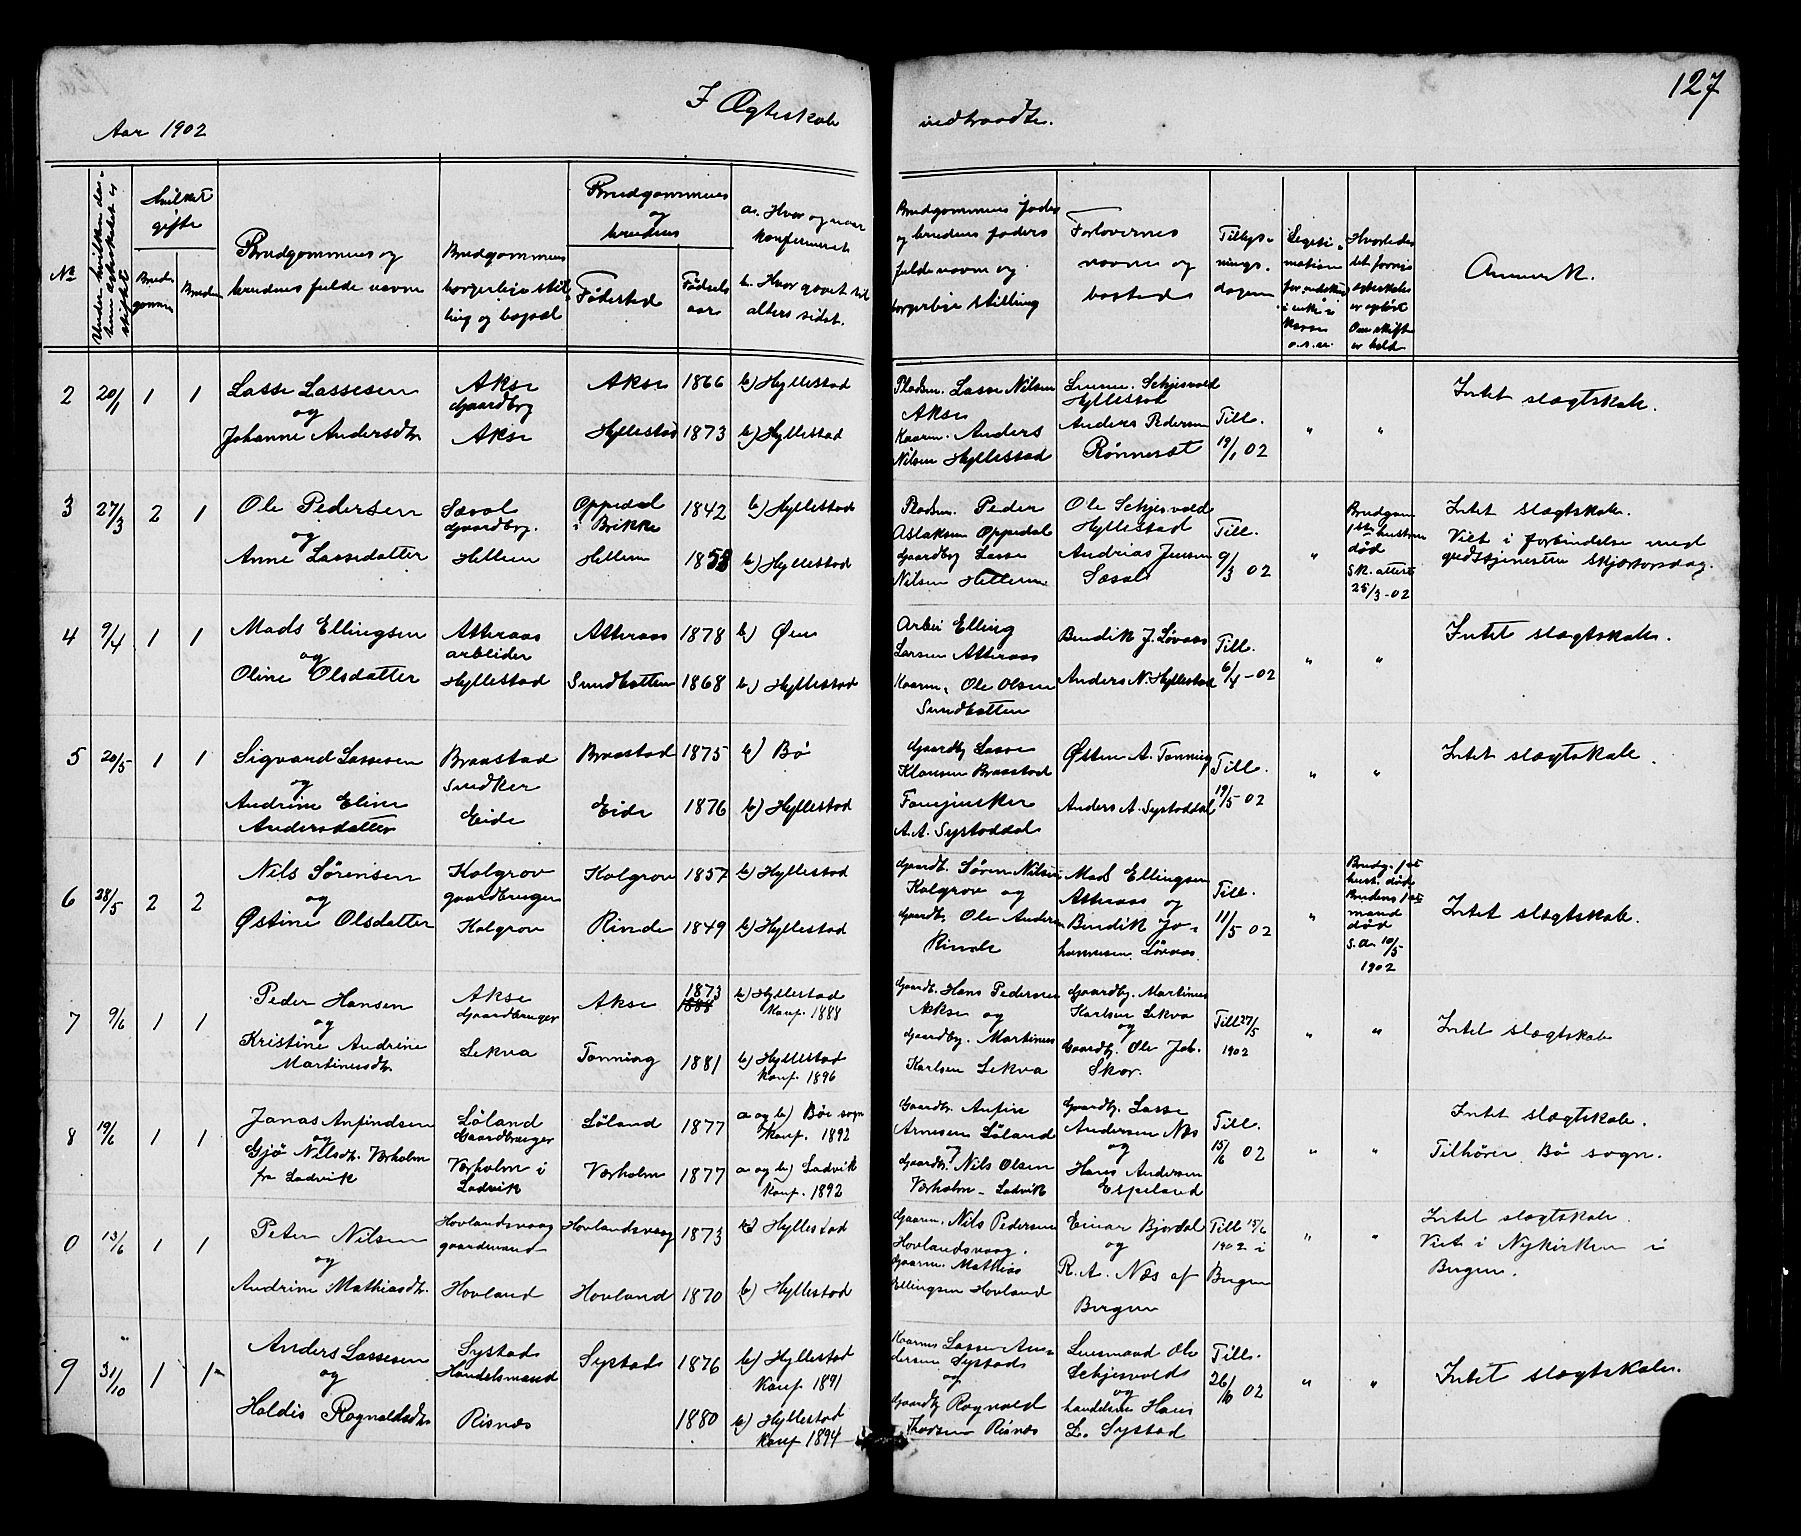 127
I Ægteskab indtraadte.
Aar 1902
No
hvilket gifte
Brudgommen
Bruden
Brudgommens og
brudens fulde navne
Brudgommens
borgerlige stil-
ling og bopæl
Brudgommens
og
brudens
Fødested
Fødsels
aar
a. Hvor og naar
konfirmeret
b. Hvor gaaet til
alters sidst.
Brudgommens faders
og brudens faders
fulde navn og
borgerlige stilling
Forlovernes
navne og
bosted
Tillys-
nings-
dagen
Anmærk.
2 20/1 1 1
Lasse Lassesen
og
Johanne Andersdtr.
Akse
Gaardbrg
Akse
Akse 1866
Hyllestad 1873
b) Hyllestad
b) Hyllestad
Pladsm. Lasse Nilsen
Akse
Kaarm. Anders
Nilsen Hyllestad
Lensm. Schjesvold
Hyllestad
Anders Pedersen
Rønneset
Till.
19/1 02
" "
Intet slægtskab.
3 27/3 2 1
Ole Pedersen
og
Anne Lassedatter
Sæsol
Gaardbrg.
Hellem
Oppedal
i Brekke 1842
Hellem 1858
b) Hyllestad
b) Hyllestad
Pladsm. Peder
Aslaksen Oppedal
Gaardbrg Lasse
Nilsen Hellem
Ole Schjesvold
Hyllestad
Andrias Jensen
Sæsol
Till.
9/3 02
"
Brudgom
1ste hustru
død
Sk. attest
25/3-02
Intet slægtskab.
Viet i forbindelse med
gudstjenesten Skjærtorsdag.
4 9/4 1 1
Mads Ellingsen
og
Oline Olsdatter
Atteraas
arbeider
Hyllestad
Atteraas 1878
Sundbotten 1868
b) Øen
b) Hyllestad
Arbei Elling
Larsen Atteraas
Kaarm. Ole Olsen
Sundbotten
Bendik J. Løvaas
Anders N. Hyllestad
Till.
6/4-02
" "
Intet slægtskab.
5 20/5 1 1
Sigvard Lassesen
og
Andrine Eline
Andersdatter
Braastad
Snedker
Eide
Braastad 1875
Eide 1876
b) Bø
b) Hyllestad
Gaardbg Lasse
Klausen Braastad
A. A. Systaddal
Østen A. Tonning
Anders A. Systaddal
Till.
19/5 02
" "
Intet slægtskab.
6 28/5 2 2
Nils Sørensen
og
Østine Olsdatter
Kolgrov
gaardbruger
Kolgrov
Kolgrov 1857
Rinde 1849
b) Hyllestad
b) Hyllestad
Gaardb. Søren Nilsen
Kolgrov og
Gaardb. Ole Andersen
Rinde
Mads Ellingsen
Atteraas og
Bendik Jo-
hannesen Løvaas
Till.
11/5 02
"
Brudg. 1ste
hust. død
Brudens 1ste
mand
død
S. a. 10/5
1902
Intet slægtskab.
7 9/6 1 1
Peder Hansen
og
Kristine Andrine
Martinusdtr.
Akse
Gaardbruger
Lekva
Akse 1873 1888
Tonning 1881
b) Hyllestad
Konf. 1888
b) Hyllestad
Konf. 1896
Gaardb. Hans Pedersen
Akse og
Gaardbg. Martinus
Karlsen Lekva
Gaardbg. Martinus
Karlsen Lekva
og
Gaardbg. Ole Job.
Skor.
Till 27/5
1902
" "
Intet slægtskab
8 19/6 1 1
Jonas Anfindsen
og
Gjø Nilsdtr. Værholm
fra Ladvik
Løland
Gaardbruger
Værholm i
Ladvik
Løland 1877
Værholm 1877
a og b) Bø sogn
Konf. 1892
a og b) Ladvik
Konf. 1892
Gaardbr. Anfin
Arnesen Løland
og
Gaardbr. Nils Olsen
Værholm - Ladvik
Gaardbg. Lasse
Andersen Næs
og
Hans Andersen
Espeland
Till.
15/6 02
" "
Intet slægtskab.
Tilhører Bø sogn.
0 15/6 1 1
Peter Nilsen
og
Andrine Mathiasdtr.
Hovlandsvaag
gaardmand
Hovland
Hovlandsvaag 1873
Hovland 1870
b) Hyllestad
b) Hyllestad
Gaarm. Nils Pedersen
Hovlandsvaag.
Gaarm. Mathias
Ellingsen Hovland
Einar Bjordal
og
R. A. Næs af
Bergen
Till 15/6
1902 i
Bergen
" "
Intet slægtskab.
Viet i Nykirken i
Bergen.
"
9 31/10 1 1
Anders Lassesen
og
Haldis Ragnoldsdtr
Systad
Handelsmand
Risnæs
Systad 1876
1880
b) Hyllestad
Konf 1891
b) Hyllestad
Konf 1894
Kaarm Lasse An-
dersen Systad
og
Gaardbg Ragnvald
Risnæs
Lensmand Ole
Schjesvold
og
handelsm Hans
L. Systad
Till.
26/10 02
" "
Intet slægtskab.